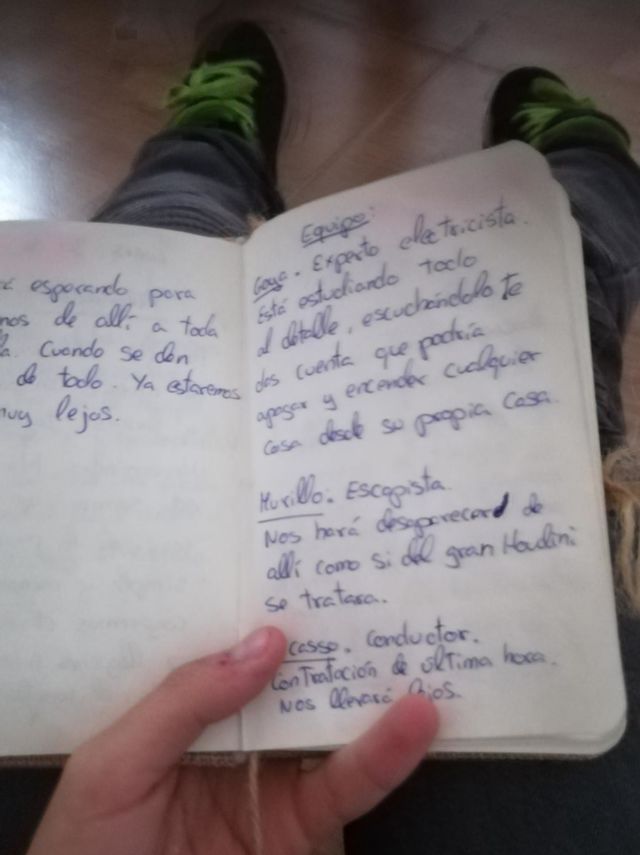 esperando para
nos de allí a toda
Cuando se den
de todo. Ya estaremos
muy lejos.
Equipo:
Goya. Experto electricista.
Está estudiando todo
al detalle, escuchándolo te
das cuenta que podría
apagar y encender cualquier
cosa desde su propia casa.
Murillo. Escapista.
Nos hará desaparecer de
allí como si del gran Houdini
se tratara.
casso. Conductor.
Contratación de última hora.
Nos llevará